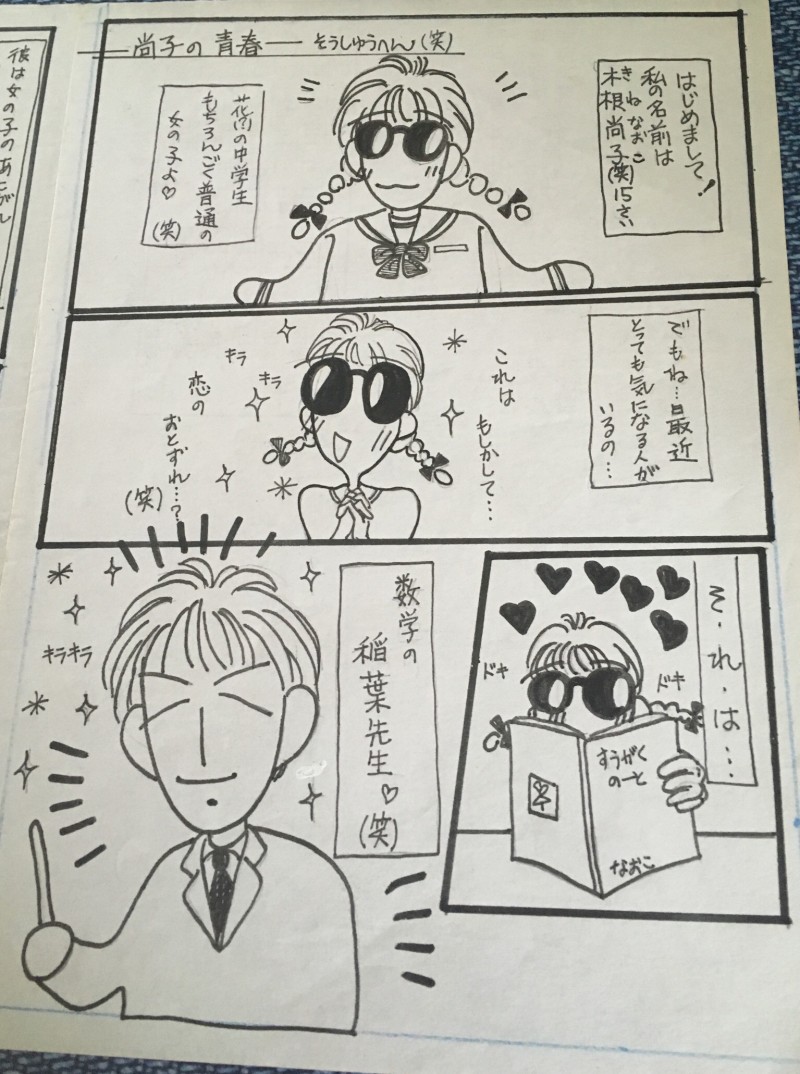 尚子の青春 そうしゅうへん(笑)
はじめまして!
私の名前は
きねなおこ
木根尚子(笑)15さい
花の中学生
もちろんごく普通の
女の子よ♡
(笑)
でもね…最近
とっても気になる人が
いるの…
これは
もしかして…
キラ
キラ
恋の
おとずれ…?
(笑)
そ・れ・は…
ドキ
ドキ
すうがく
のーと
なおこ
数学の
稲葉先生♡
(笑)
キラキラ
彼は女の子のあこがれ